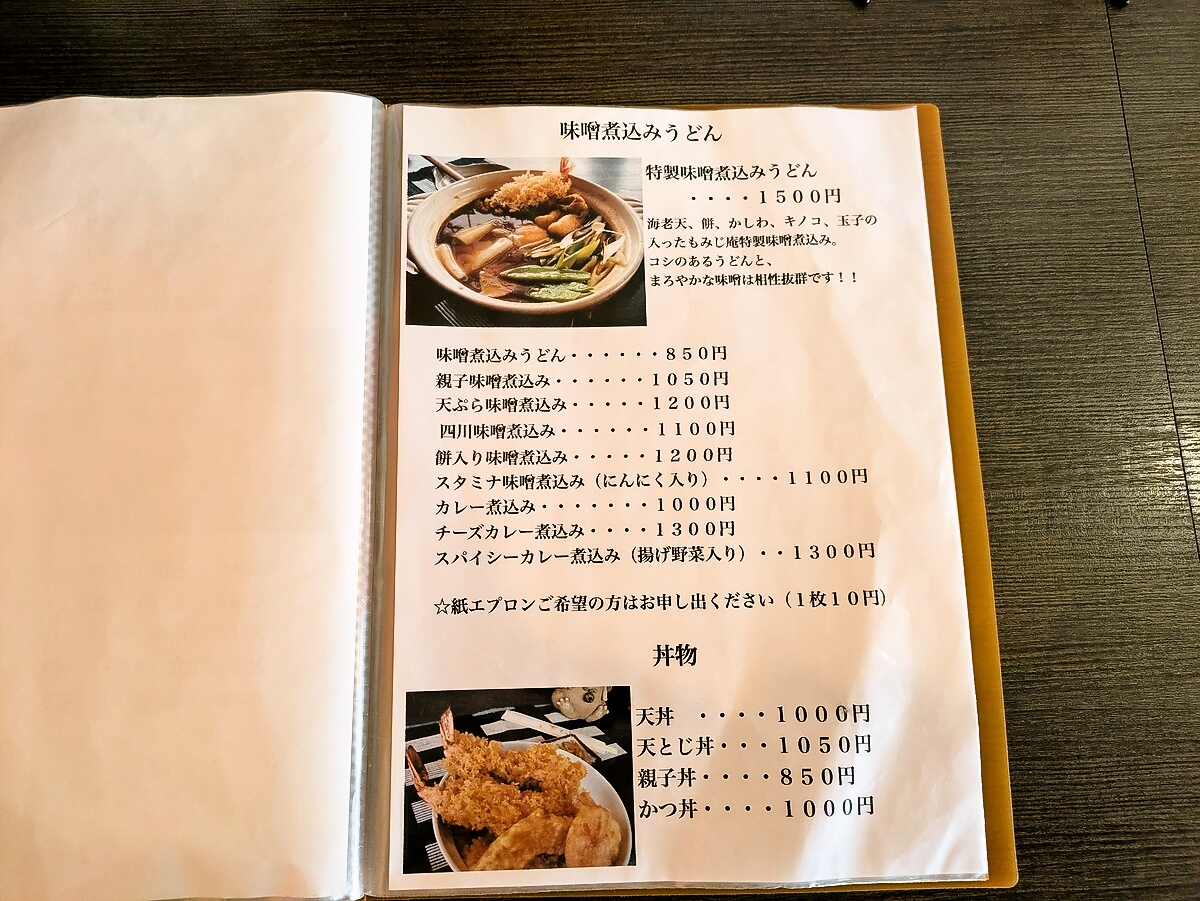 味噌煮込みうどん
特製味噌煮込みうどん
・・・・１５００円
海老天、餅、かしわ、キノコ、玉子の
入ったもみじ庵特製味噌煮込み。
コシのあるうどんと、
まろやかな味噌は相性抜群です！！
味噌煮込みうどん・・・・・・８５０円
親子味噌煮込み・・・・・・１０５０円
天ぷら味噌煮込み・・・・・１２００円
四川味噌煮込み・・・・・・１１００円
餅入り味噌煮込み・・・・・１２００円
スタミナ味噌煮込み（にんにく入り）・・・・１１００円
カレー煮込み・・・・・・・１０００円
チーズカレー煮込み・・・・１３００円
スパイシーカレー煮込み（揚げ野菜入り）・・１３００円
☆紙エプロンご希望の方はお申し出ください（１枚１０円）
丼物
天丼　・・・・１０００円
天とじ丼・・・１０５０円
親子丼・・・・８５０円
かつ丼・・・・１０００円